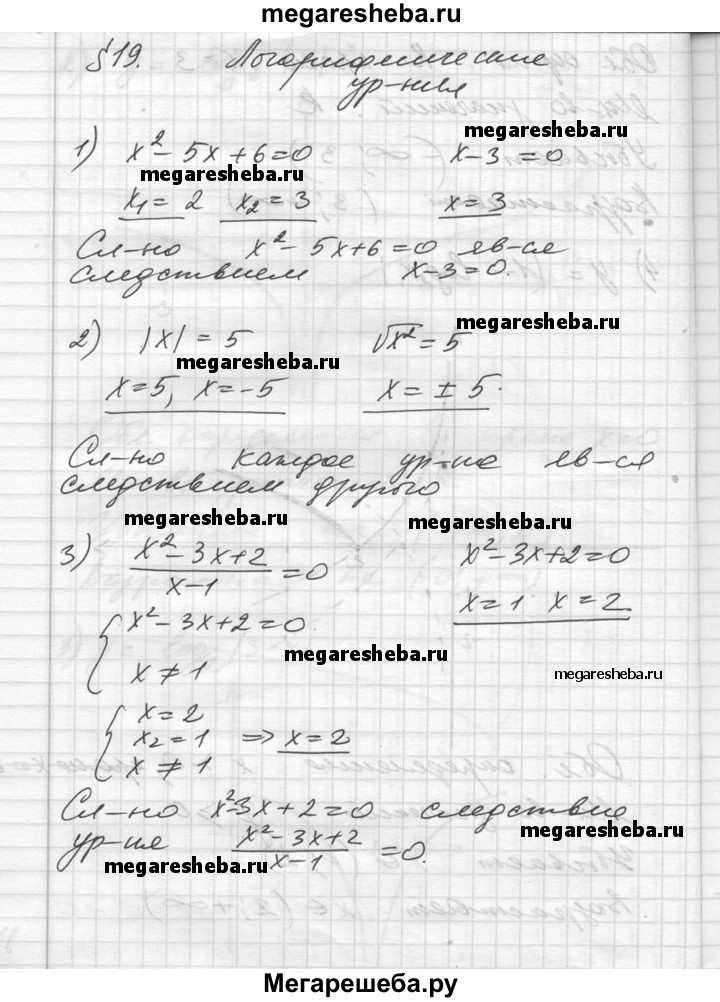 megaresheba.ru
§19. Логарифмические
ур-ния
1) x² - 5x + 6 = 0 x - 3 = 0
megaresheba.ru
megaresheba.ru
x₁ = 2 x₂ = 3 x = 3
Сл-но x² - 5x + 6 = 0 яв-ся
следствием x - 3 = 0.
megaresheba.ru
2) |x| = 5 √x² = 5
megaresheba.ru
x = 5, x = -5 x = ± 5.
Сл-но каждое ур-ие яв-ся
следствием другого
megaresheba.ru megaresheba.ru
3) (x² - 3x + 2)/(x - 1) = 0 x² - 3x + 2 = 0
x = 1 x = 2.
{ x² - 3x + 2 = 0
megaresheba.ru
x ≠ 1
megaresheba.ru
{ x = 2
x₂ = 1 => x = 2
x ≠ 1
Сл-но x² - 3x + 2 = 0 следствие
megaresheba.ru
ур-ия (x² - 3x + 2)/(x - 1) = 0.
megaresheba.ru
Мегарешеба.ру